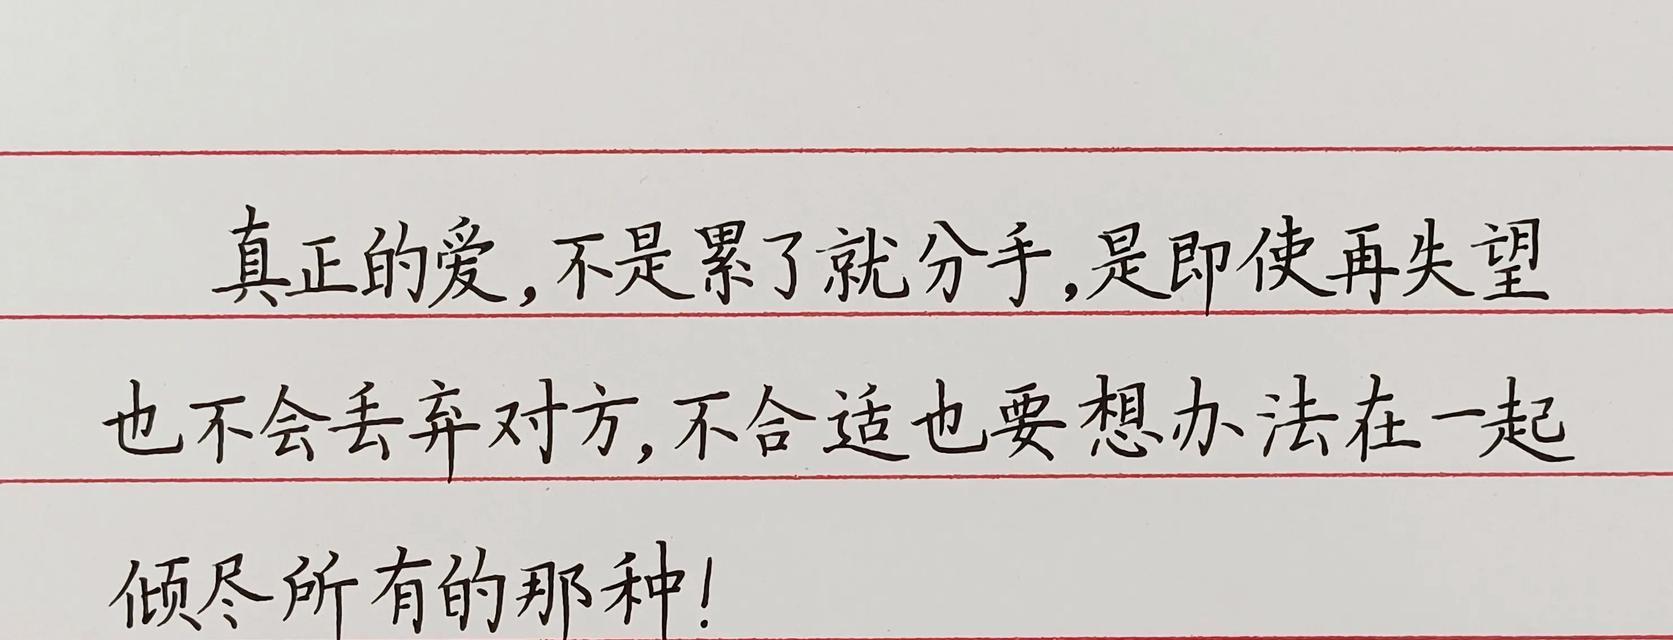 真正的爱,不是累了就分手,是即使再失望
也不会丢弃对方,不合适也要想办法在一起
倾尽所有的那种!